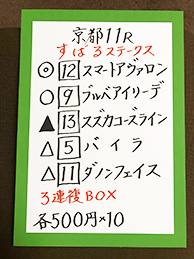 京都11R
すばるステークス
◎ 12 スマートアヴァロン
○ 9 ブルベアイリーデ
▲ 13 スズカコーズライン
△ 5 バイラ
△ 11 ダノンフェイス
3連複BOX
各500円×10